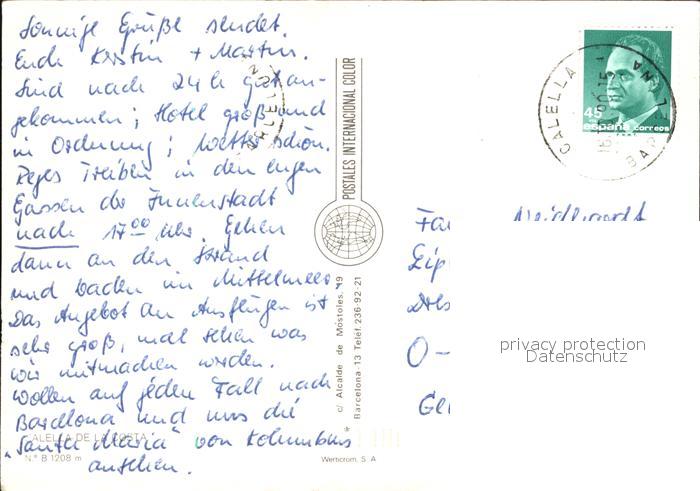 Sonnige Grüße sendet
Euch Kristin + Martin.
Sind nach 24 h gut an-
gekommen; Hotel groß und
in Ordnung; Wetter schön.
Reges Treiben in den engen
Gassen der Innenstadt
nach 17⁰⁰ Uhr. Gehen
dann an den Strand
und baden im Mittelmeer.
Das Angebot an Ausflügen ist
sehr groß, mal sehen was
wir mitmachen werden.
Wollen auf jeden Fall nach
Barcelona und uns die
"Santa Maria" von Kolumbus
ansehen.
CALELLA DE LA COSTA
N.° B 1208 m
POSTALES INTERNACIONAL COLOR
c/ Alcalde de Móstoles, 19
* Barcelona-13 Teléf. 236-92-21
Werticrom, S. A
45
españa correos
CALELLA
BARCELONA
Fa
Neidhardt
O-
privacy protection
Datenschutz